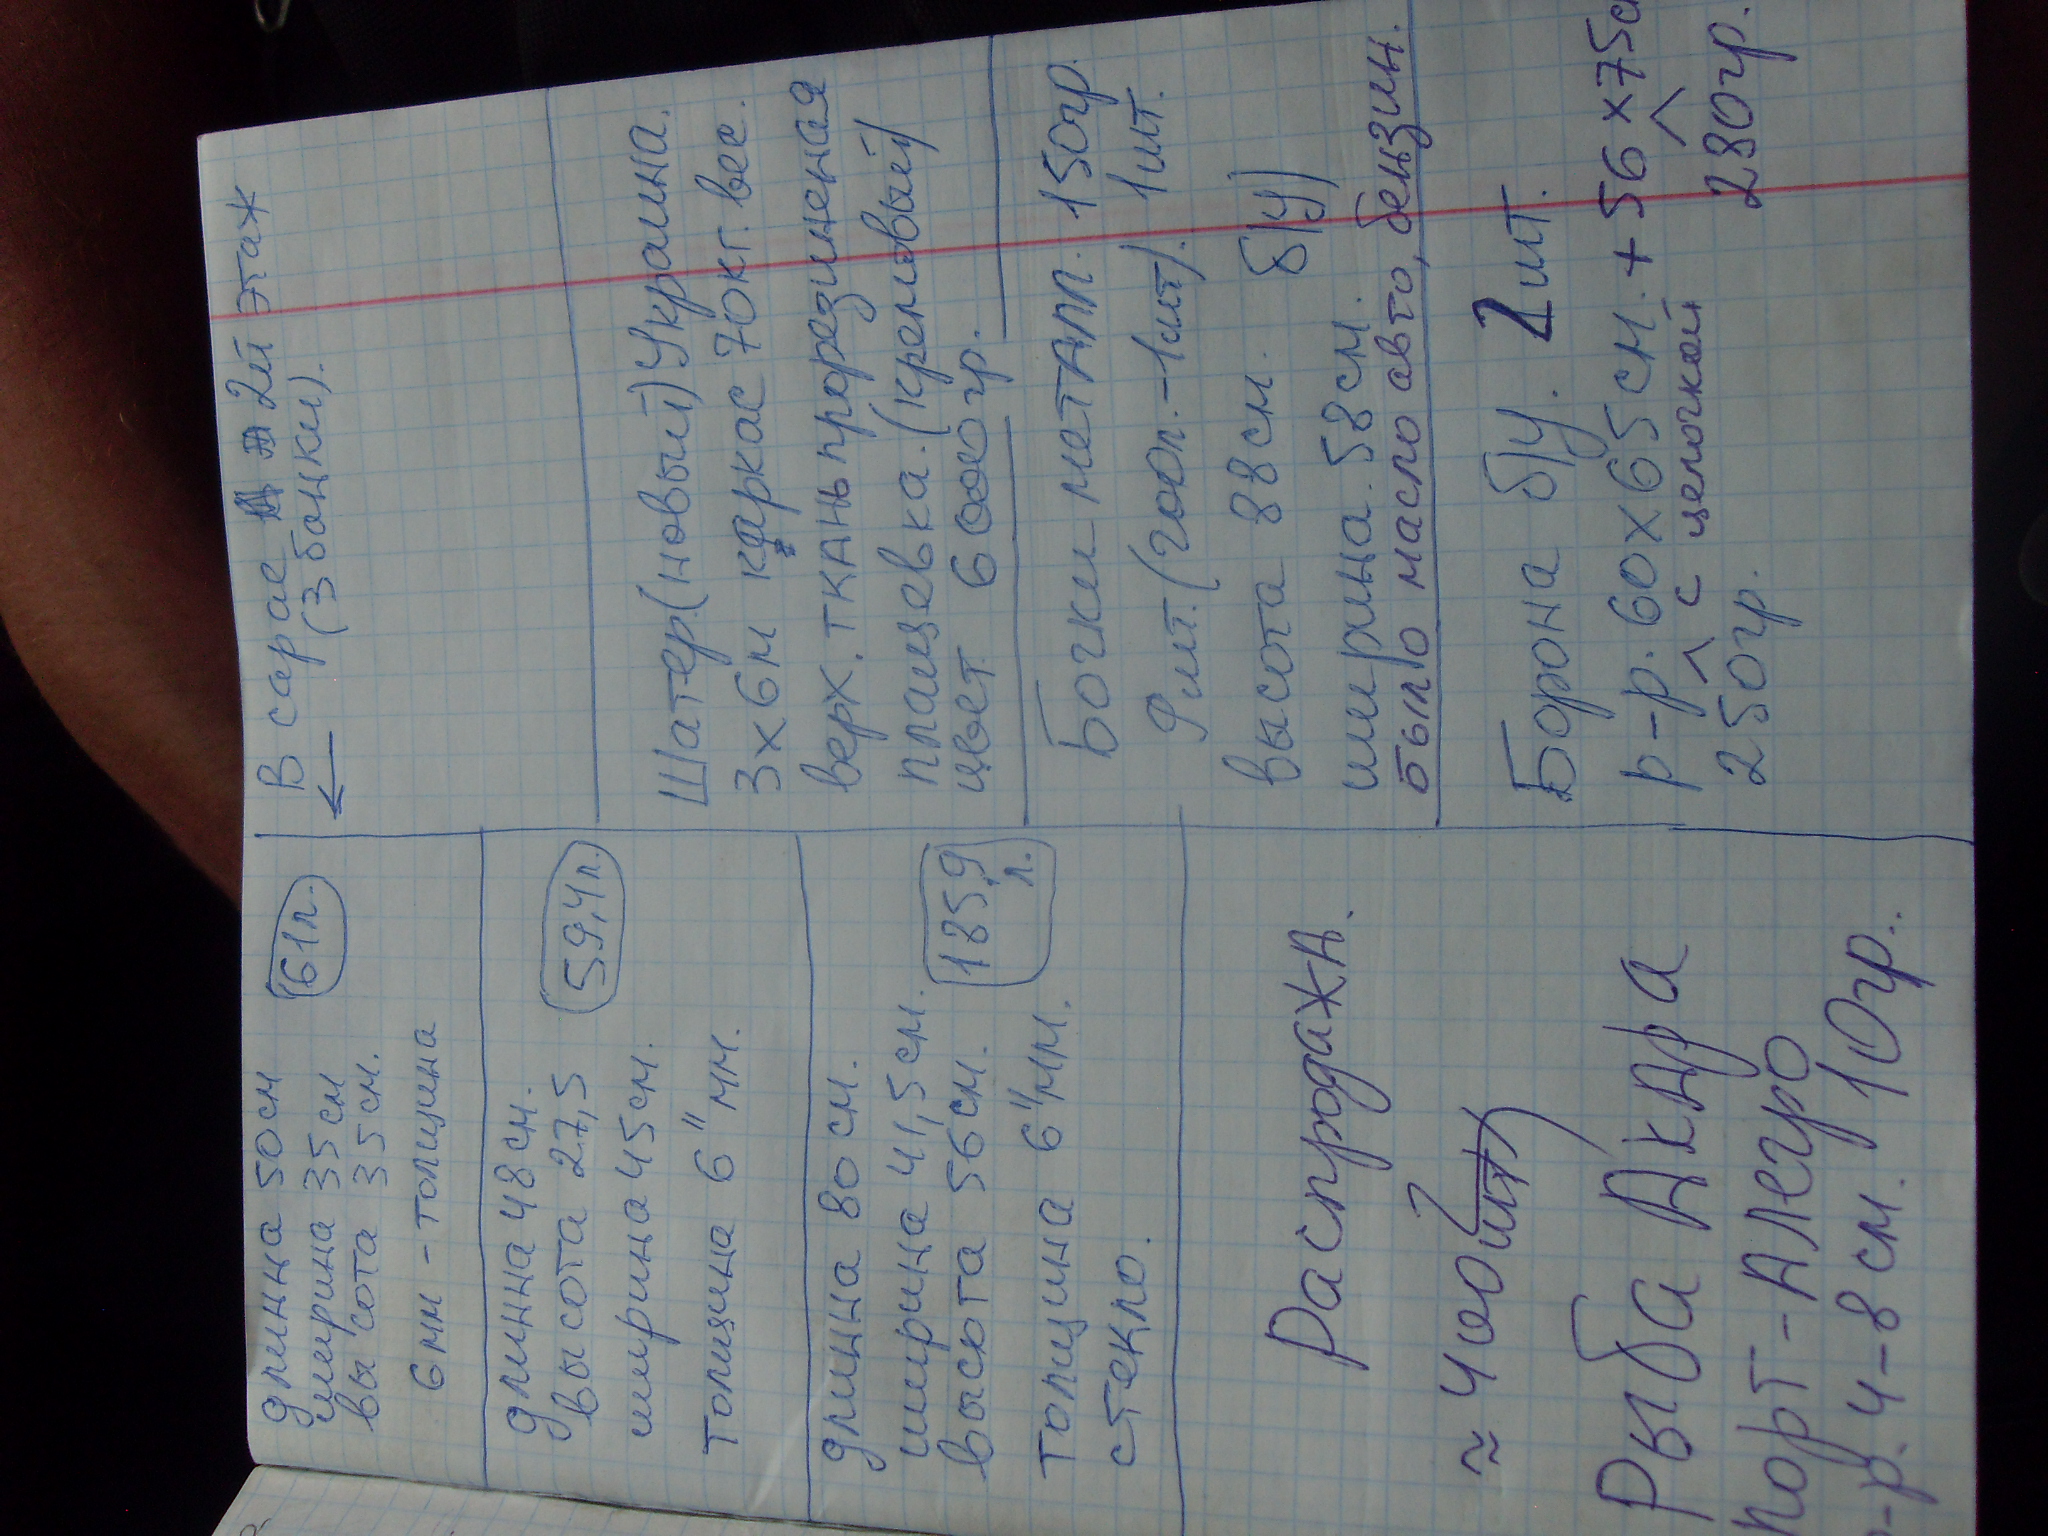 длинна 50см
ширина 35см
высота 35см.
61л.
6мм - толщина
длинна 48см.
высота 27,5
59,4л.
ширина 45см.
толщина 6"мм.
длинна 80см.
ширина 41,5см.
высота 56см.
185,9
л.
толщина 6"мм.
стекло.
Распродажа.
≈ 400 шт)
Рыба Акара
порт-Алегро
р-р. 4-8см. 10гр.
В сарае 2й этаж
← (3 банки).
Шатер.(новый) Украина.
3х6м каркас 70кг. вес.
верх. ткань прорезиненая
плащевка. (кремовый)
цвет 6000гр.
Бочки метал. 150гр.
9шт. (200л.-1шт). 1шт.
высота 88см. б/у)
ширина. 58см.
было масло авто, бензин.
Борона б/у. 2шт.
р-р. 60х65см. + 56х75с
^ с цепочкой ^
250гр. 280гр.